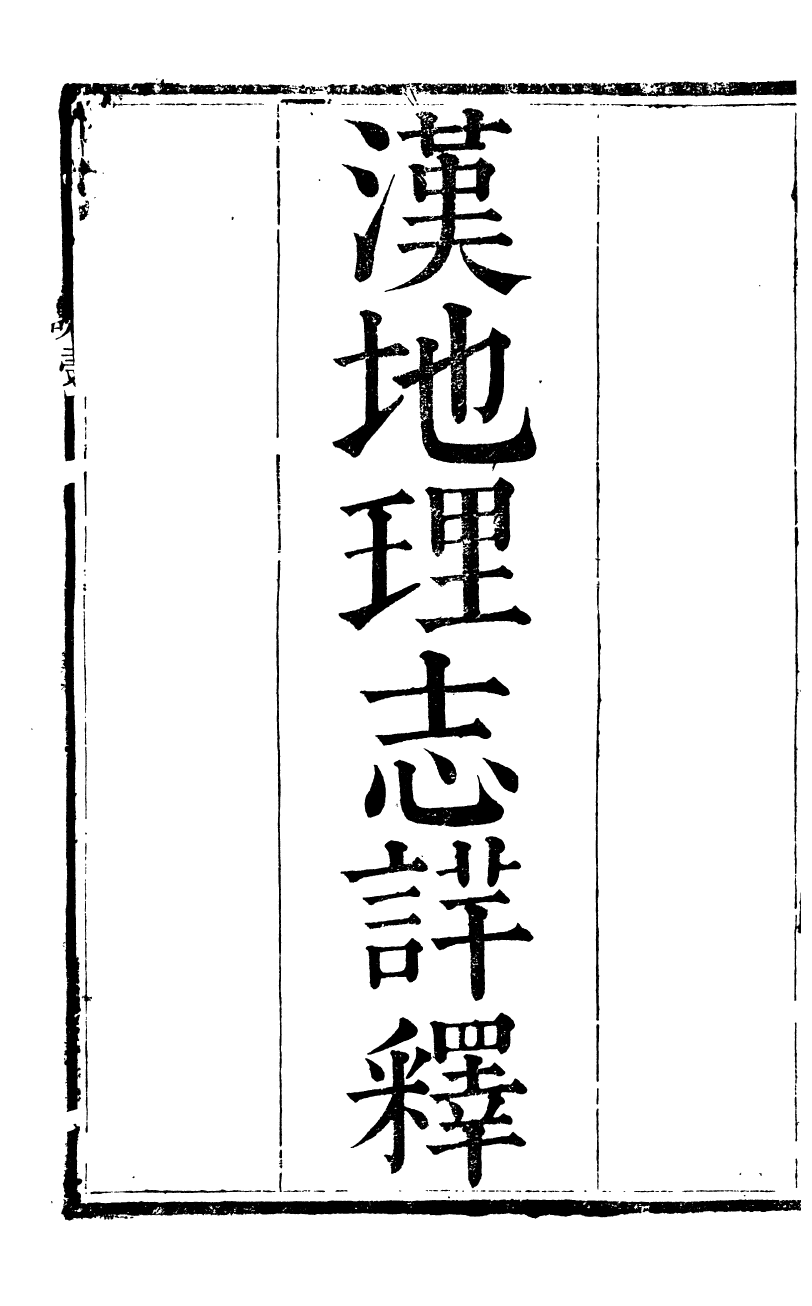 漢地理志詳釋